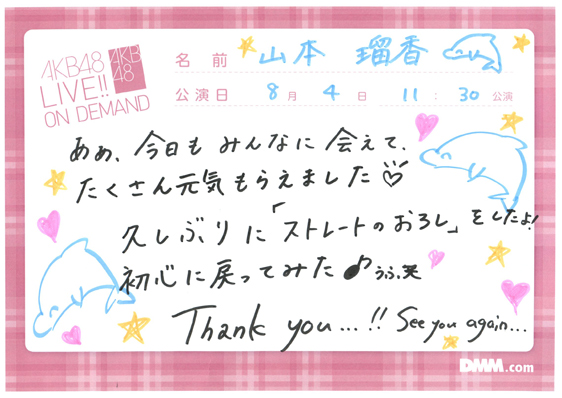 AKB48
LIVE!!
ON DEMAND
AKB
48
名前 山本 瑠香
公演日 8月 4日 11:30公演
ああ、今日もみんなに会えて、
たくさん元気もらえました♡
久しぶりに「ストレートのおろし」をしたよ!
初心に戻ってみた♪うふ。笑
Thank you...!! See you again...
DMM.com